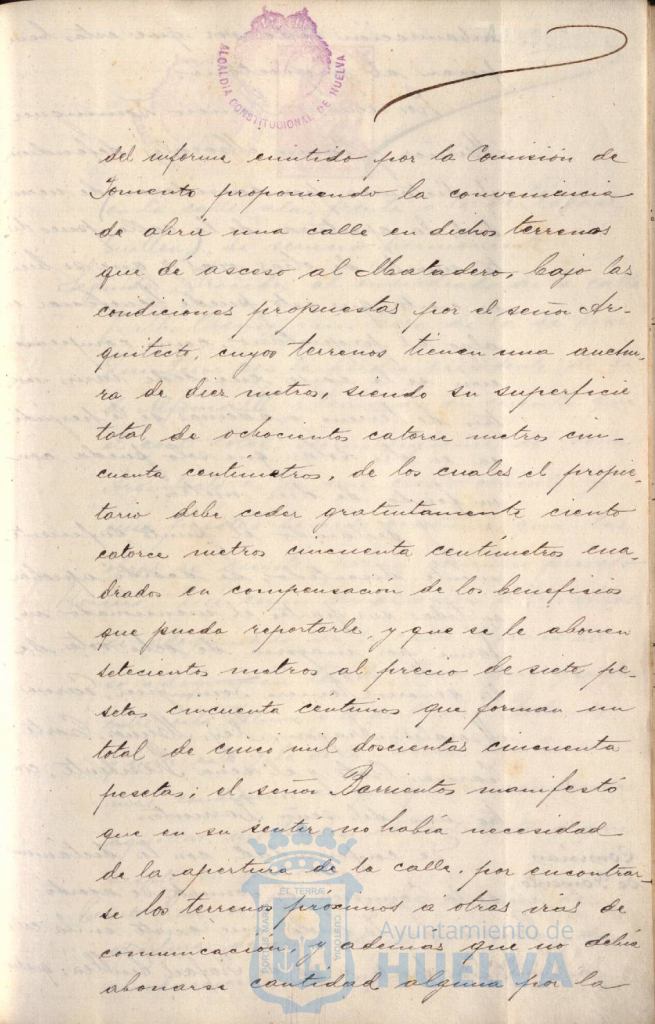 ALCALDIA CONSTITUCIONAL DE HUELVA
del informe emitido por la Comisión de
Fomento proponiendo la conveniencia
de abrir una calle en dichos terrenos
que dé asceso al Matadero, bajo las
condiciones propuestas por el señor Ar-
quitecto, cuyos terrenos tienen una anchu-
ra de diez metros, siendo su superficie
total de ochocientos catorce metros cin-
cuenta centímetros, de los cuales el propie-
tario debe ceder gratuitamente ciento
catorce metros cincuenta centímetros cua-
drados en compensación de los beneficios
que pueda reportarle, y que se le abonen
setecientos metros al precio de siete pe-
setas cincuenta céntimos que forman un
total de cinco mil doscientas cincuenta
pesetas; el señor Barrientos manifestó
que en su sentir no había necesidad
de la apertura de la calle, por encontrar-
se los terrenos próximos a otras vias de
comunicación, y ademas que no debia
abonarse cantidad alguna por la
Ayuntamiento de
HUELVA